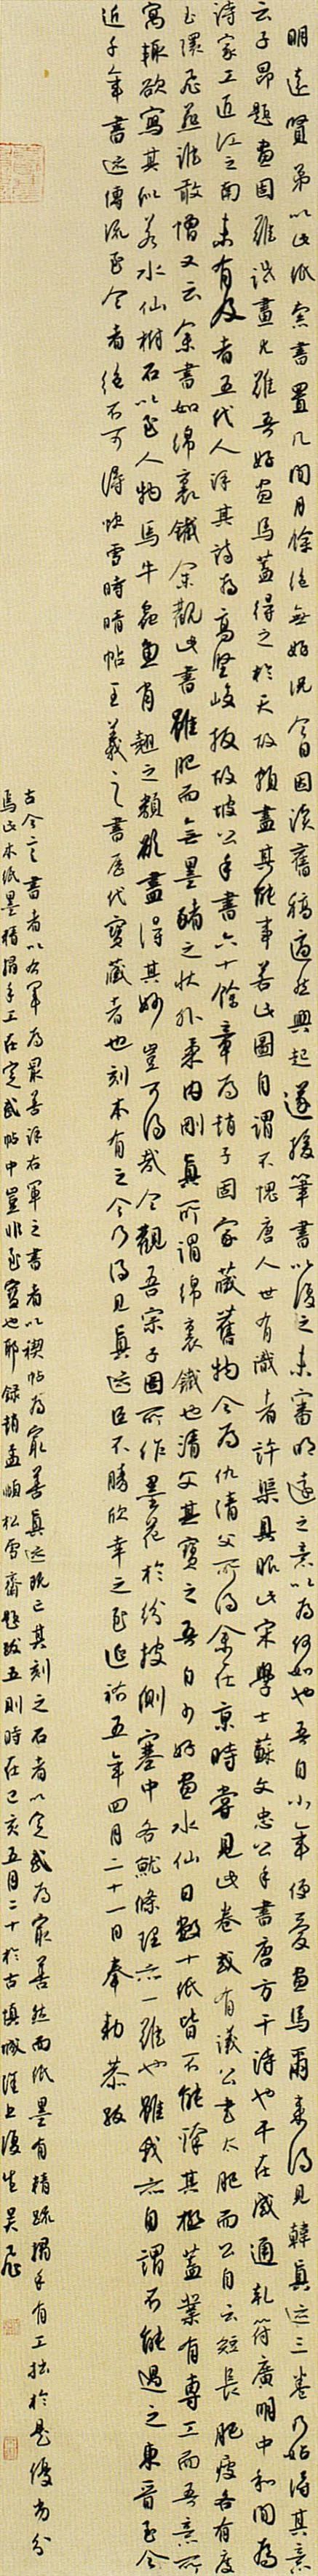 明遠賢弟以此紙索書置几間月餘從無好況今日因淡舊稿適然興起遂援筆書以復之未審明遠之意以為何如也吾自小年便愛畫馬爾來得見韓真迹三卷乃始得其意
云子昂題畫因雖畫凡雖吾好畫馬蓋得之於天故頗盡其能事若此圖自謂不愧唐人世有識者許渠具眼此宋學士蘇文忠公手書唐方干詩也干在咸通乾符廣明中和間為
詩家工匠江之南未有及者五代人評其詩為高堅峻拔故坡公手書六十餘章為趙子固家藏舊物今為仇清父所得余仕京時嘗見此卷或有議公書太肥而公自云短長肥瘦各有度
玉環飛燕誰敢憎又云余書如綿裹鐵余觀此書雖肥而無墨豬之狀外柔內剛真所謂綿裹鐵也清父其寶之吾自少好畫水仙日數十紙皆不能臻其極蓋業有專工而吾意所
寓輒欲寫其似若水仙樹石以至人物馬牛蟲魚肖翹之類欲盡得其妙豈可得哉今觀吾宗子固所作墨花於紛披側塞中各就條理亦一難也雖我亦自謂不能過之東晉至今
近千年書迹傳流至今者絕不可得快雪時晴帖王羲之書歷代寶藏者也刻本有之今乃得見真迹臣不勝欣幸之至延祐五年四月二十一日奉勅恭跋
古今言書者以右軍為最善評右軍之書者以禊帖為最善真迹既亡其刻之石者以定武為最善然而紙墨有精疏搨手有工拙於是優劣分
焉此本紙墨精搨手工在定武帖中豈非至寶也耶錄趙孟頫松雪齋題跋五則時在己亥五月二十於古項城上復生吳飛